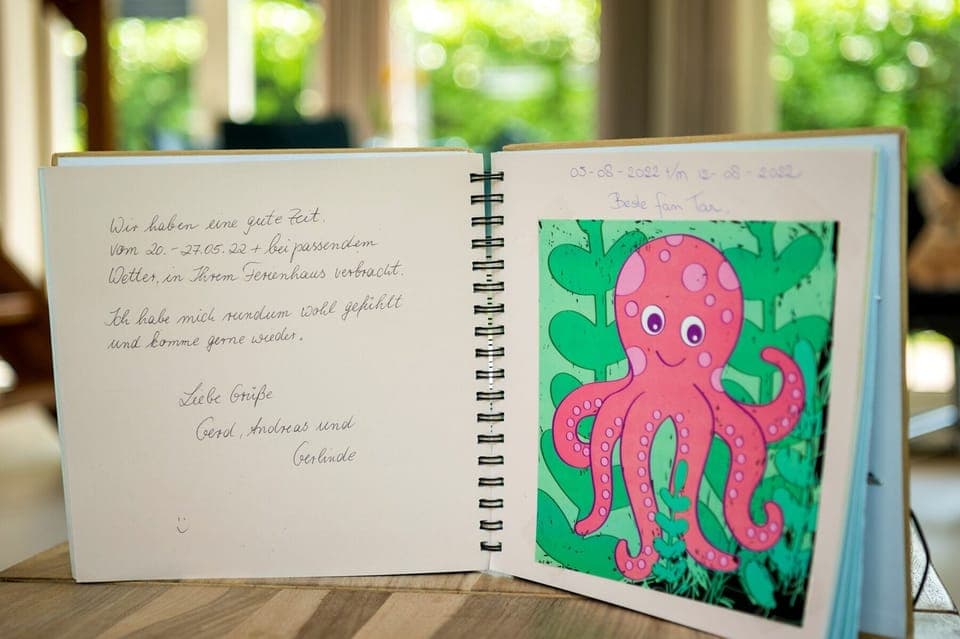 Wir haben eine gute Zeit.
vom 20.-27.05.22 + bei passendem
Wetter, in Ihrem Ferienhaus verbracht.
Ich habe mich rundum wohl gefühlt
und komme gerne wieder.
Liebe Grüße
Gerd, Andreas und
Gerlinde
05-08-2022 t/m 12-08-2022
Beste fam